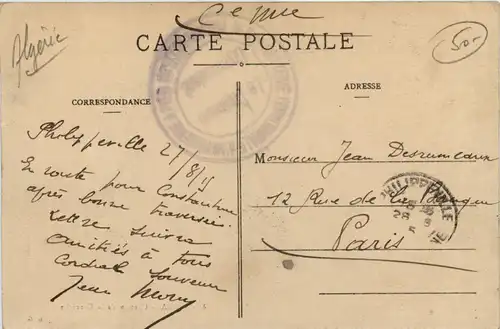 Algérie
50-
CARTE POSTALE
CORRESPONDANCE
ADRESSE
Philippeville 27/8/15
En route pour Constantine
après bonne traversée.
Lettre suivra
Amitiés à tous
Cordial souvenir
Jean
Monsieur Jean
12 Rue de
Paris
PHILIPPEVILLE